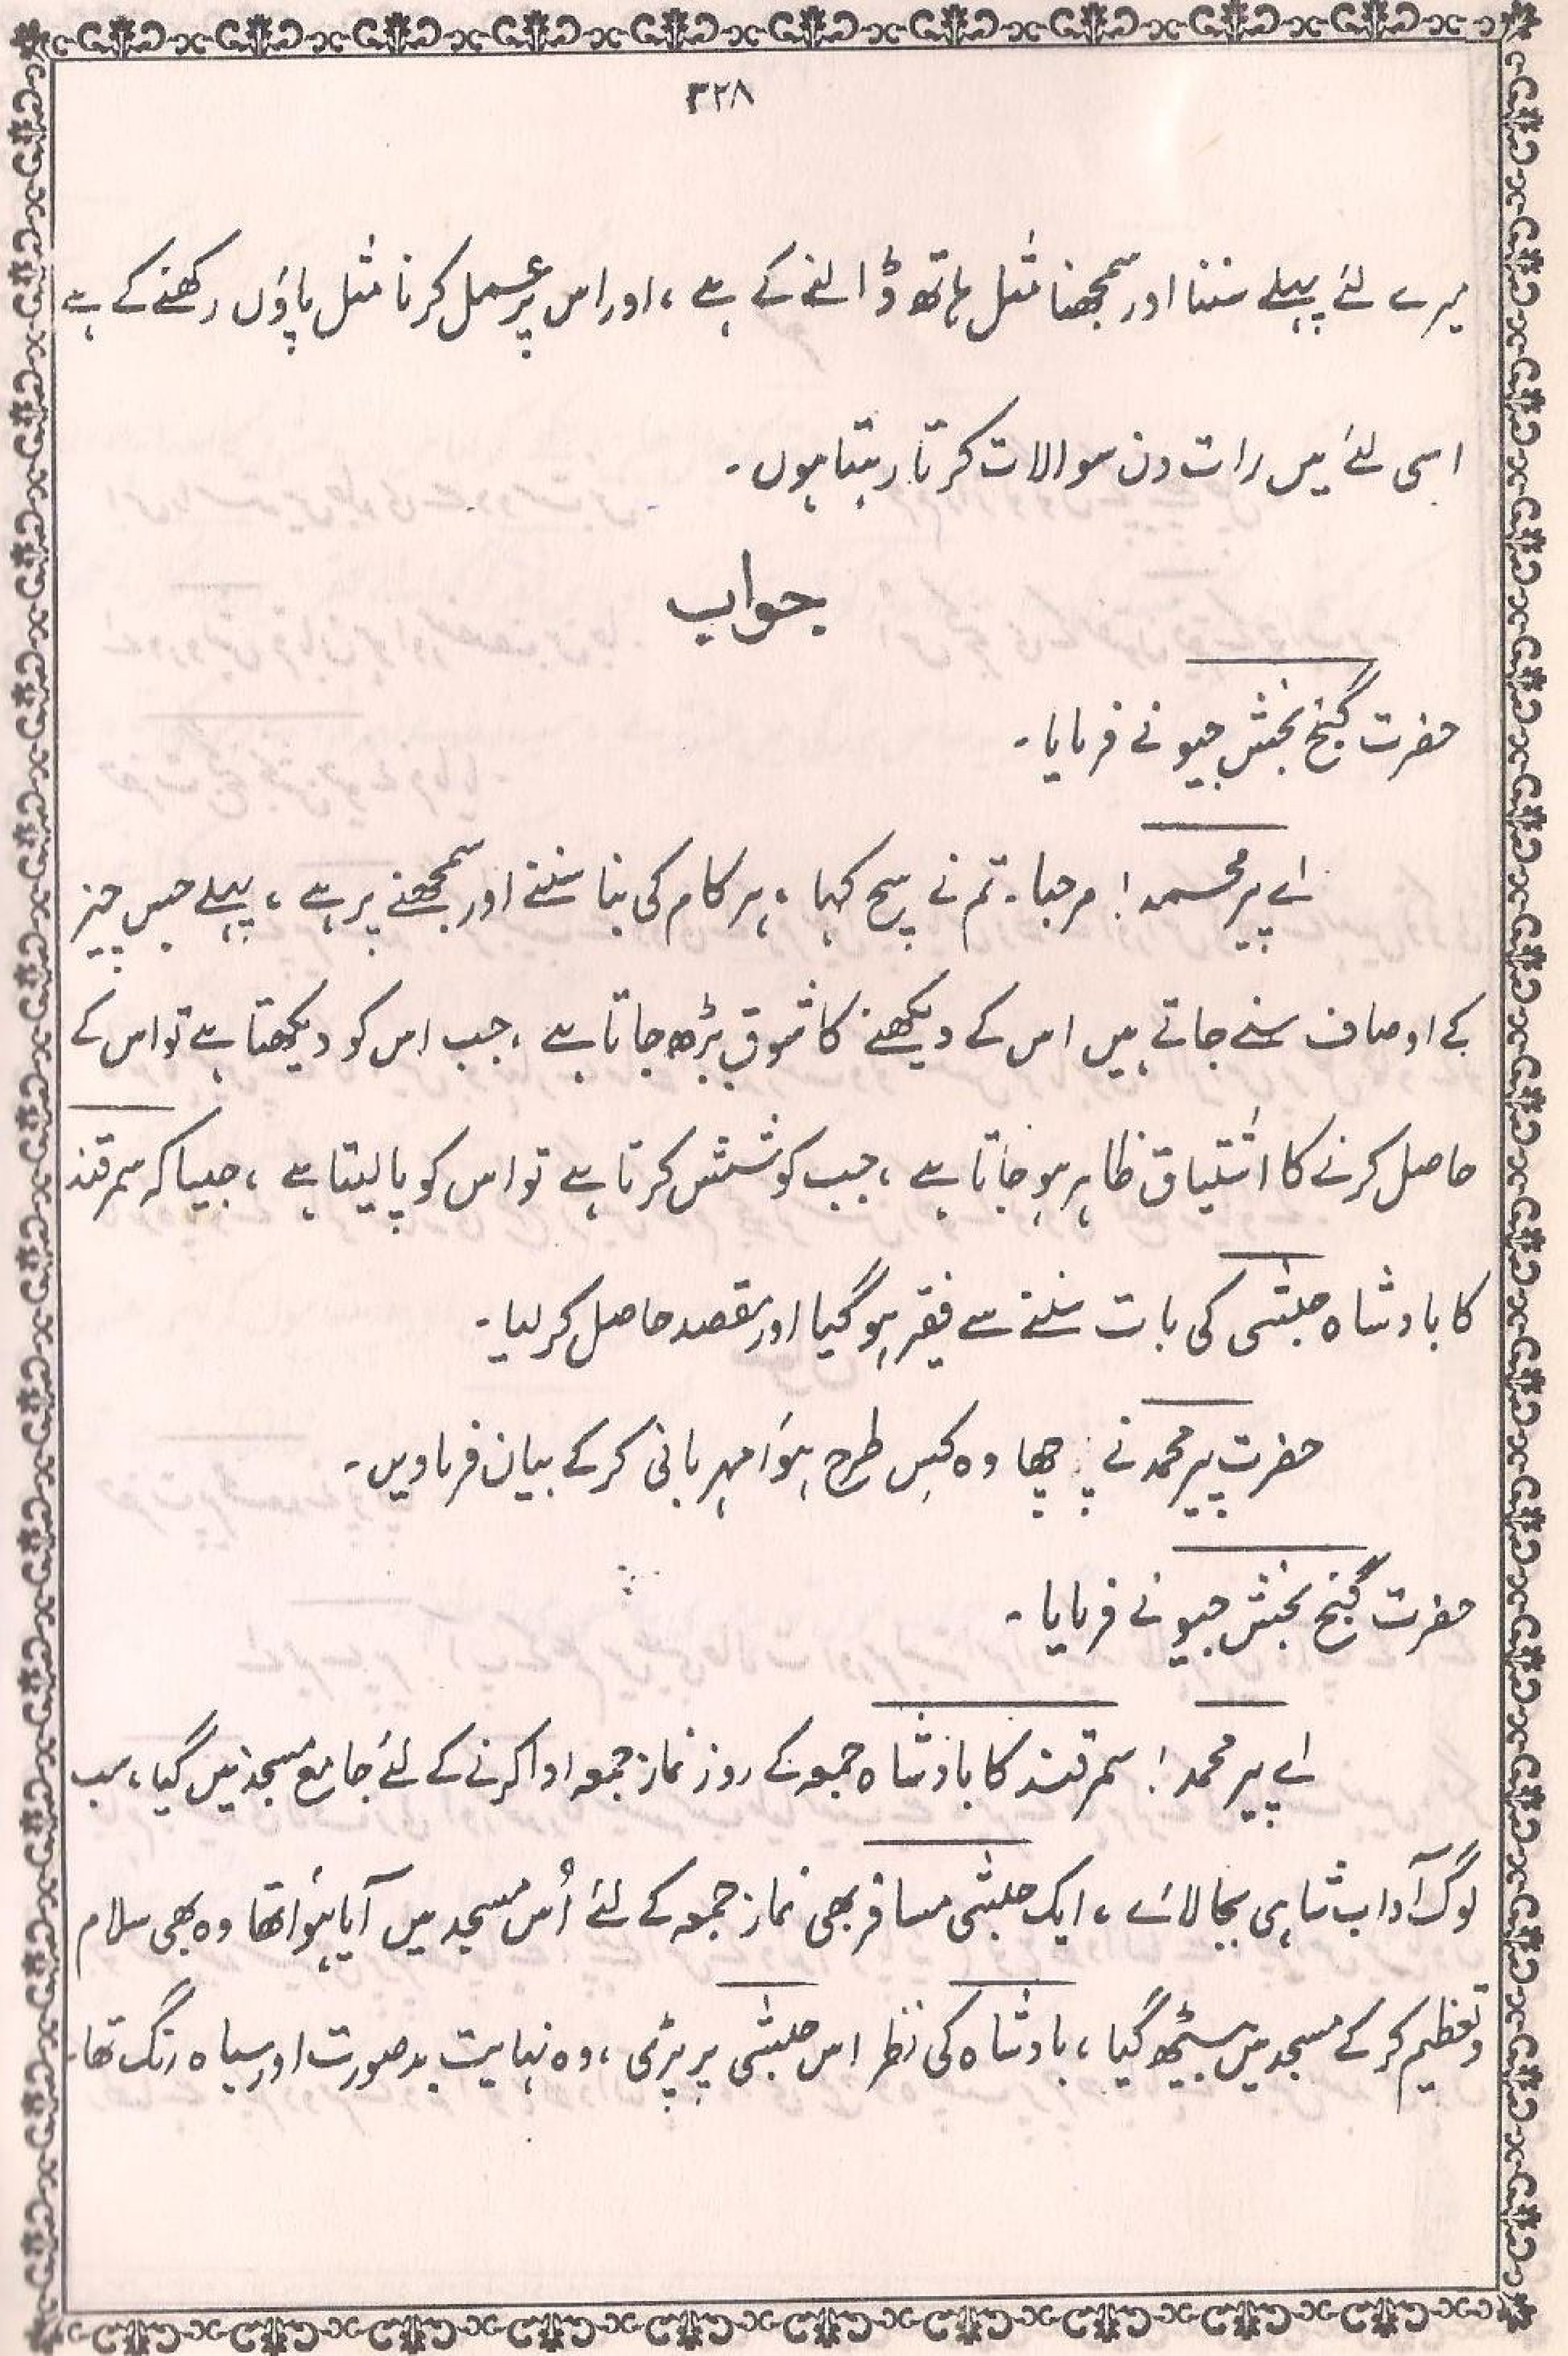 ۳۲۸
میرے لئے پہلے سننا اور سمجھنا مثل ہاتھ ڈالنے کے ہے ، اور اس پر عمل کرنا مثل پاؤں رکھنے کے ہے
اسی لئے میں رات دن سوالات کرتا رہتا ہوں ۔
جواب
حضرت گنج بخش جیو نے فرمایا ۔
اے پیر محمد! مرحبا ۔ تم نے سچ کہا ، ہر کام کی بنا سننے اور سمجھنے پر ہے ، پہلے جس چیز
کے اوصاف سنے جاتے ہیں اس کے دیکھنے کا شوق بڑھ جاتا ہے ، جب اس کو دیکھتا ہے تو اس کے
حاصل کرنے کا اشتیاق ظاہر ہو جاتا ہے ، جب کوشش کرتا ہے تو اس کو پا لیتا ہے ، جیسا کہ سمرقند
کا بادشاہ حبشی کی بات سننے سے فقیر ہو گیا اور مقصد حاصل کر لیا ۔
حضرت پیر محمد نے پوچھا وہ کس طرح ہوَا مہربانی کر کے بیان فرماویں ۔
حضرت گنج بخش جیو نے فرمایا ۔
اے پیر محمد! سمرقند کا بادشاہ جمعہ کے روز نماز جمعہ ادا کرنے کے لئے جامع مسجد میں گیا ، سب
لوگ آداب شاہی بجا لائے ، ایک حبشی مسافر بھی نماز جمعہ کے لئے اُس مسجد میں آیا ہوَا تھا وہ بھی سلام
و تعظیم کر کے مسجد میں بیٹھ گیا ، بادشاہ کی نظر اس حبشی پر پڑی ، وہ نہایت بدصورت اور سیاہ رنگ تھا ۔